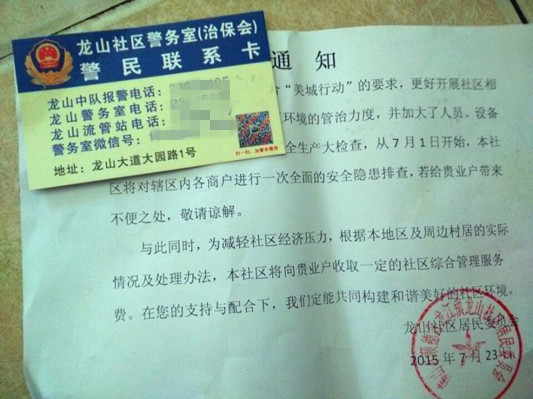 龙山社区警务室(治保会)
警民联系卡
龙山中队报警电话:
龙山警务室电话:
龙山流管站电话:
警务室微信号:
地址:龙山大道大园路1号
通 知
“美城行动”的要求,更好开展社区相
环境的管治力度,并加大了人员、设备
全生产大检查,从7月1日开始,本社
区将对辖区内各商户进行一次全面的安全隐患排查,若给贵业户带来
不便之处,敬请谅解。
与此同时,为减轻社区经济压力,根据本地区及周边村居的实际
情况及处理办法,本社区将向贵业户收取一定的社区综合管理服务
费。在您的支持与配合下,我们定能共同构建和谐美好的社区环境。
龙山社区居民委员会
2015年7月23